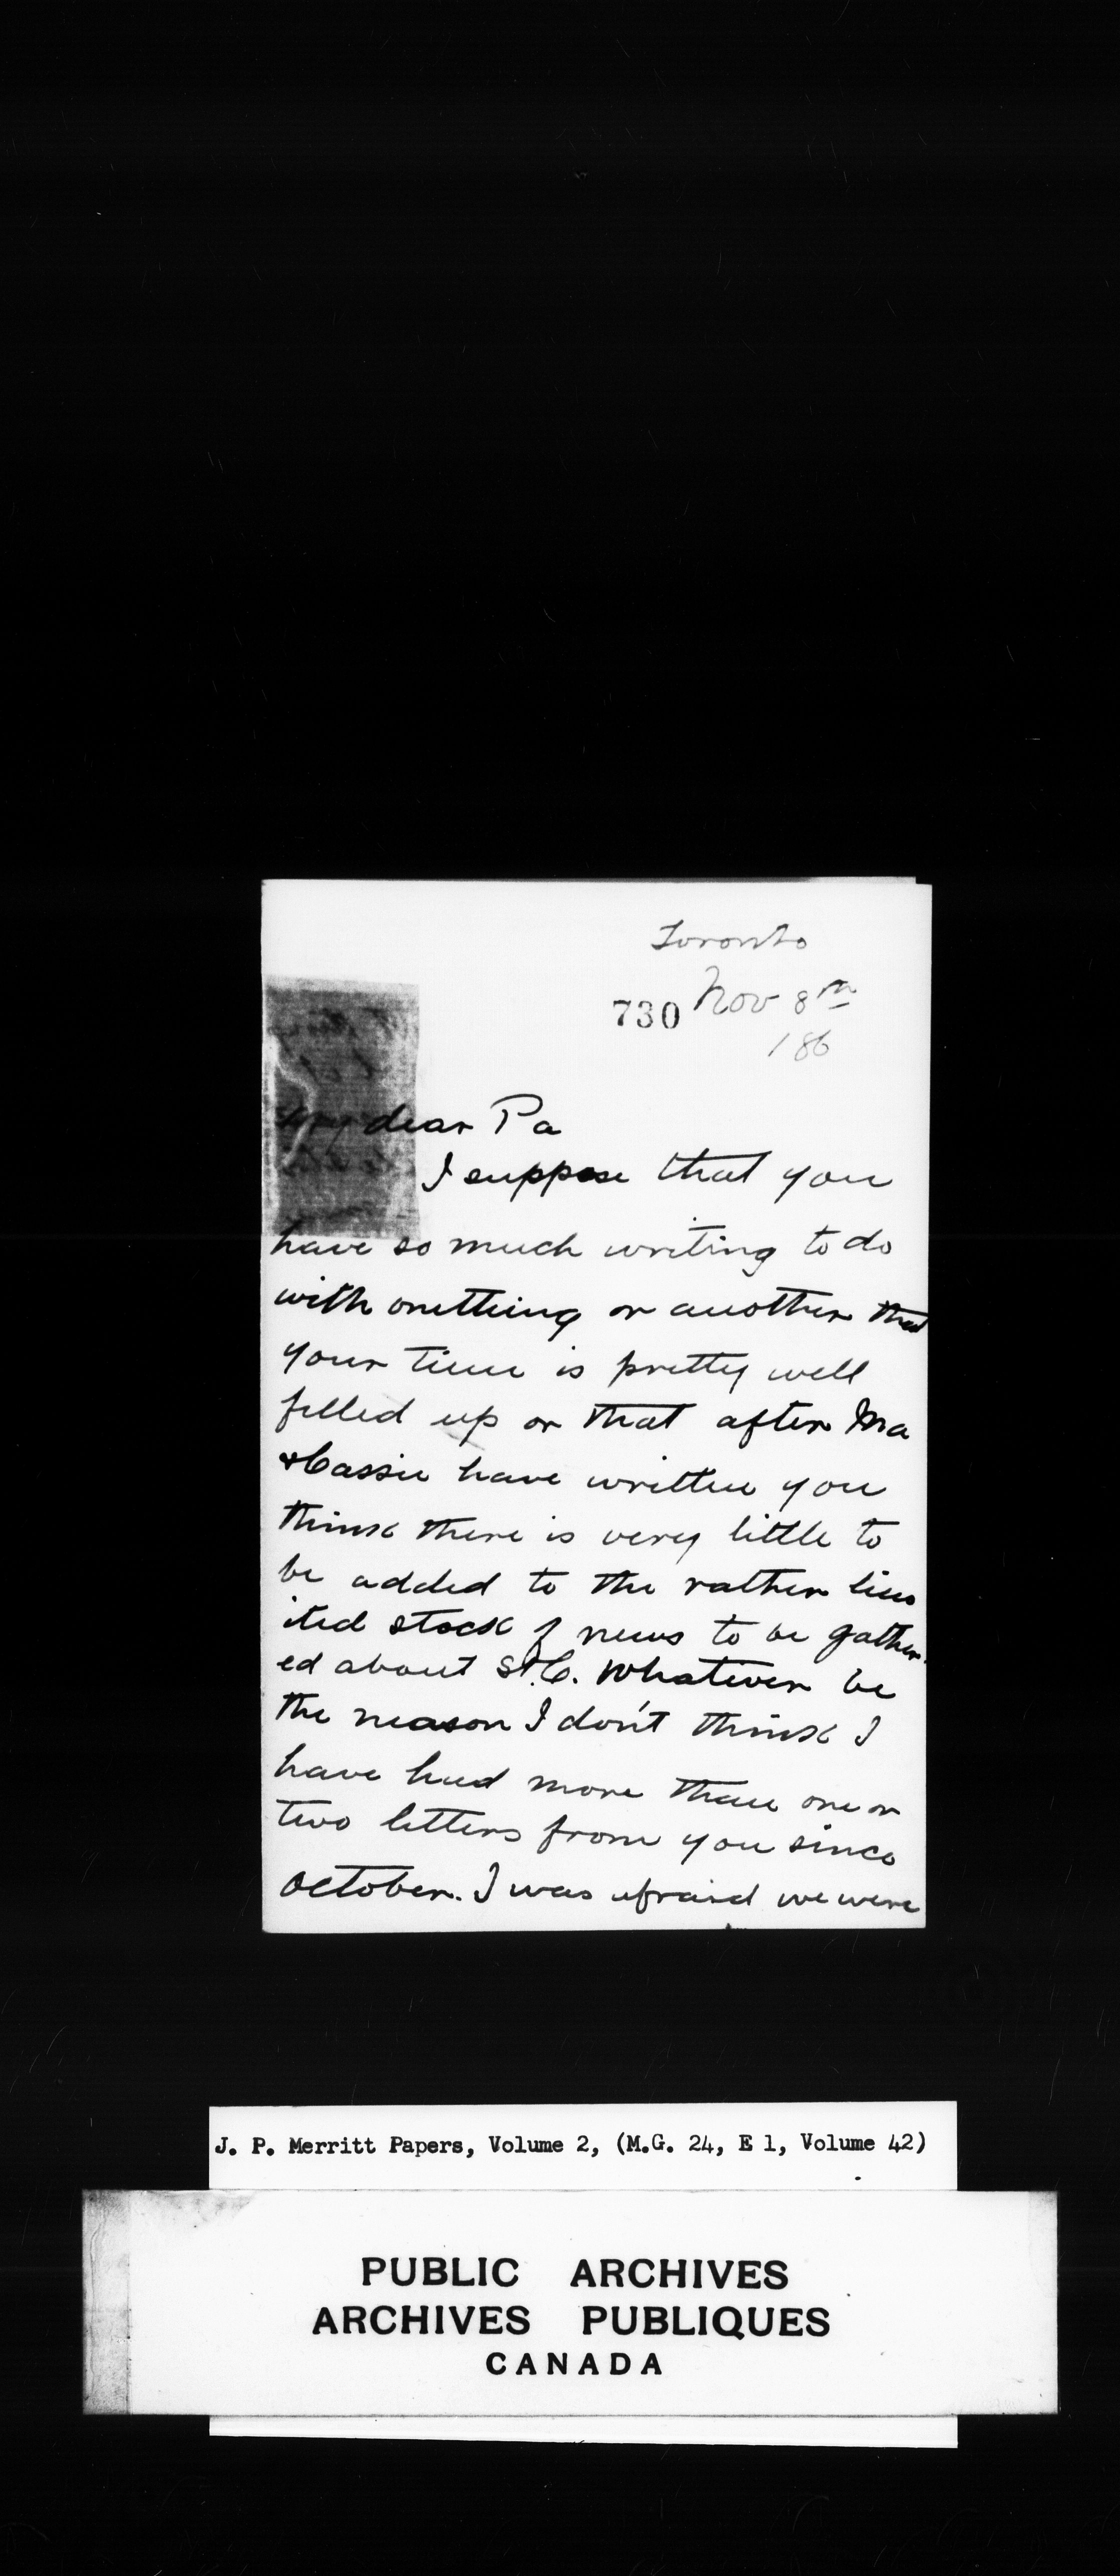 Toronto
730 Nov 8th
186
My dear Pa
I suppose that you
have so much writing to do
with onething or another that
your time is pretty well
filled up or that after Ma
& Cassie have written you
think there is very little to
be added to the rather lim
ited stock of news to be gather
ed about St. C. Whatever be
the reason I don't think I
have had more than one or
two letters from you since
October. I was afraid we were
J. P. Merritt Papers, Volume 2, (M.G. 24, E 1, Volume 42)
PUBLIC ARCHIVES
ARCHIVES PUBLIQUES
CANADA